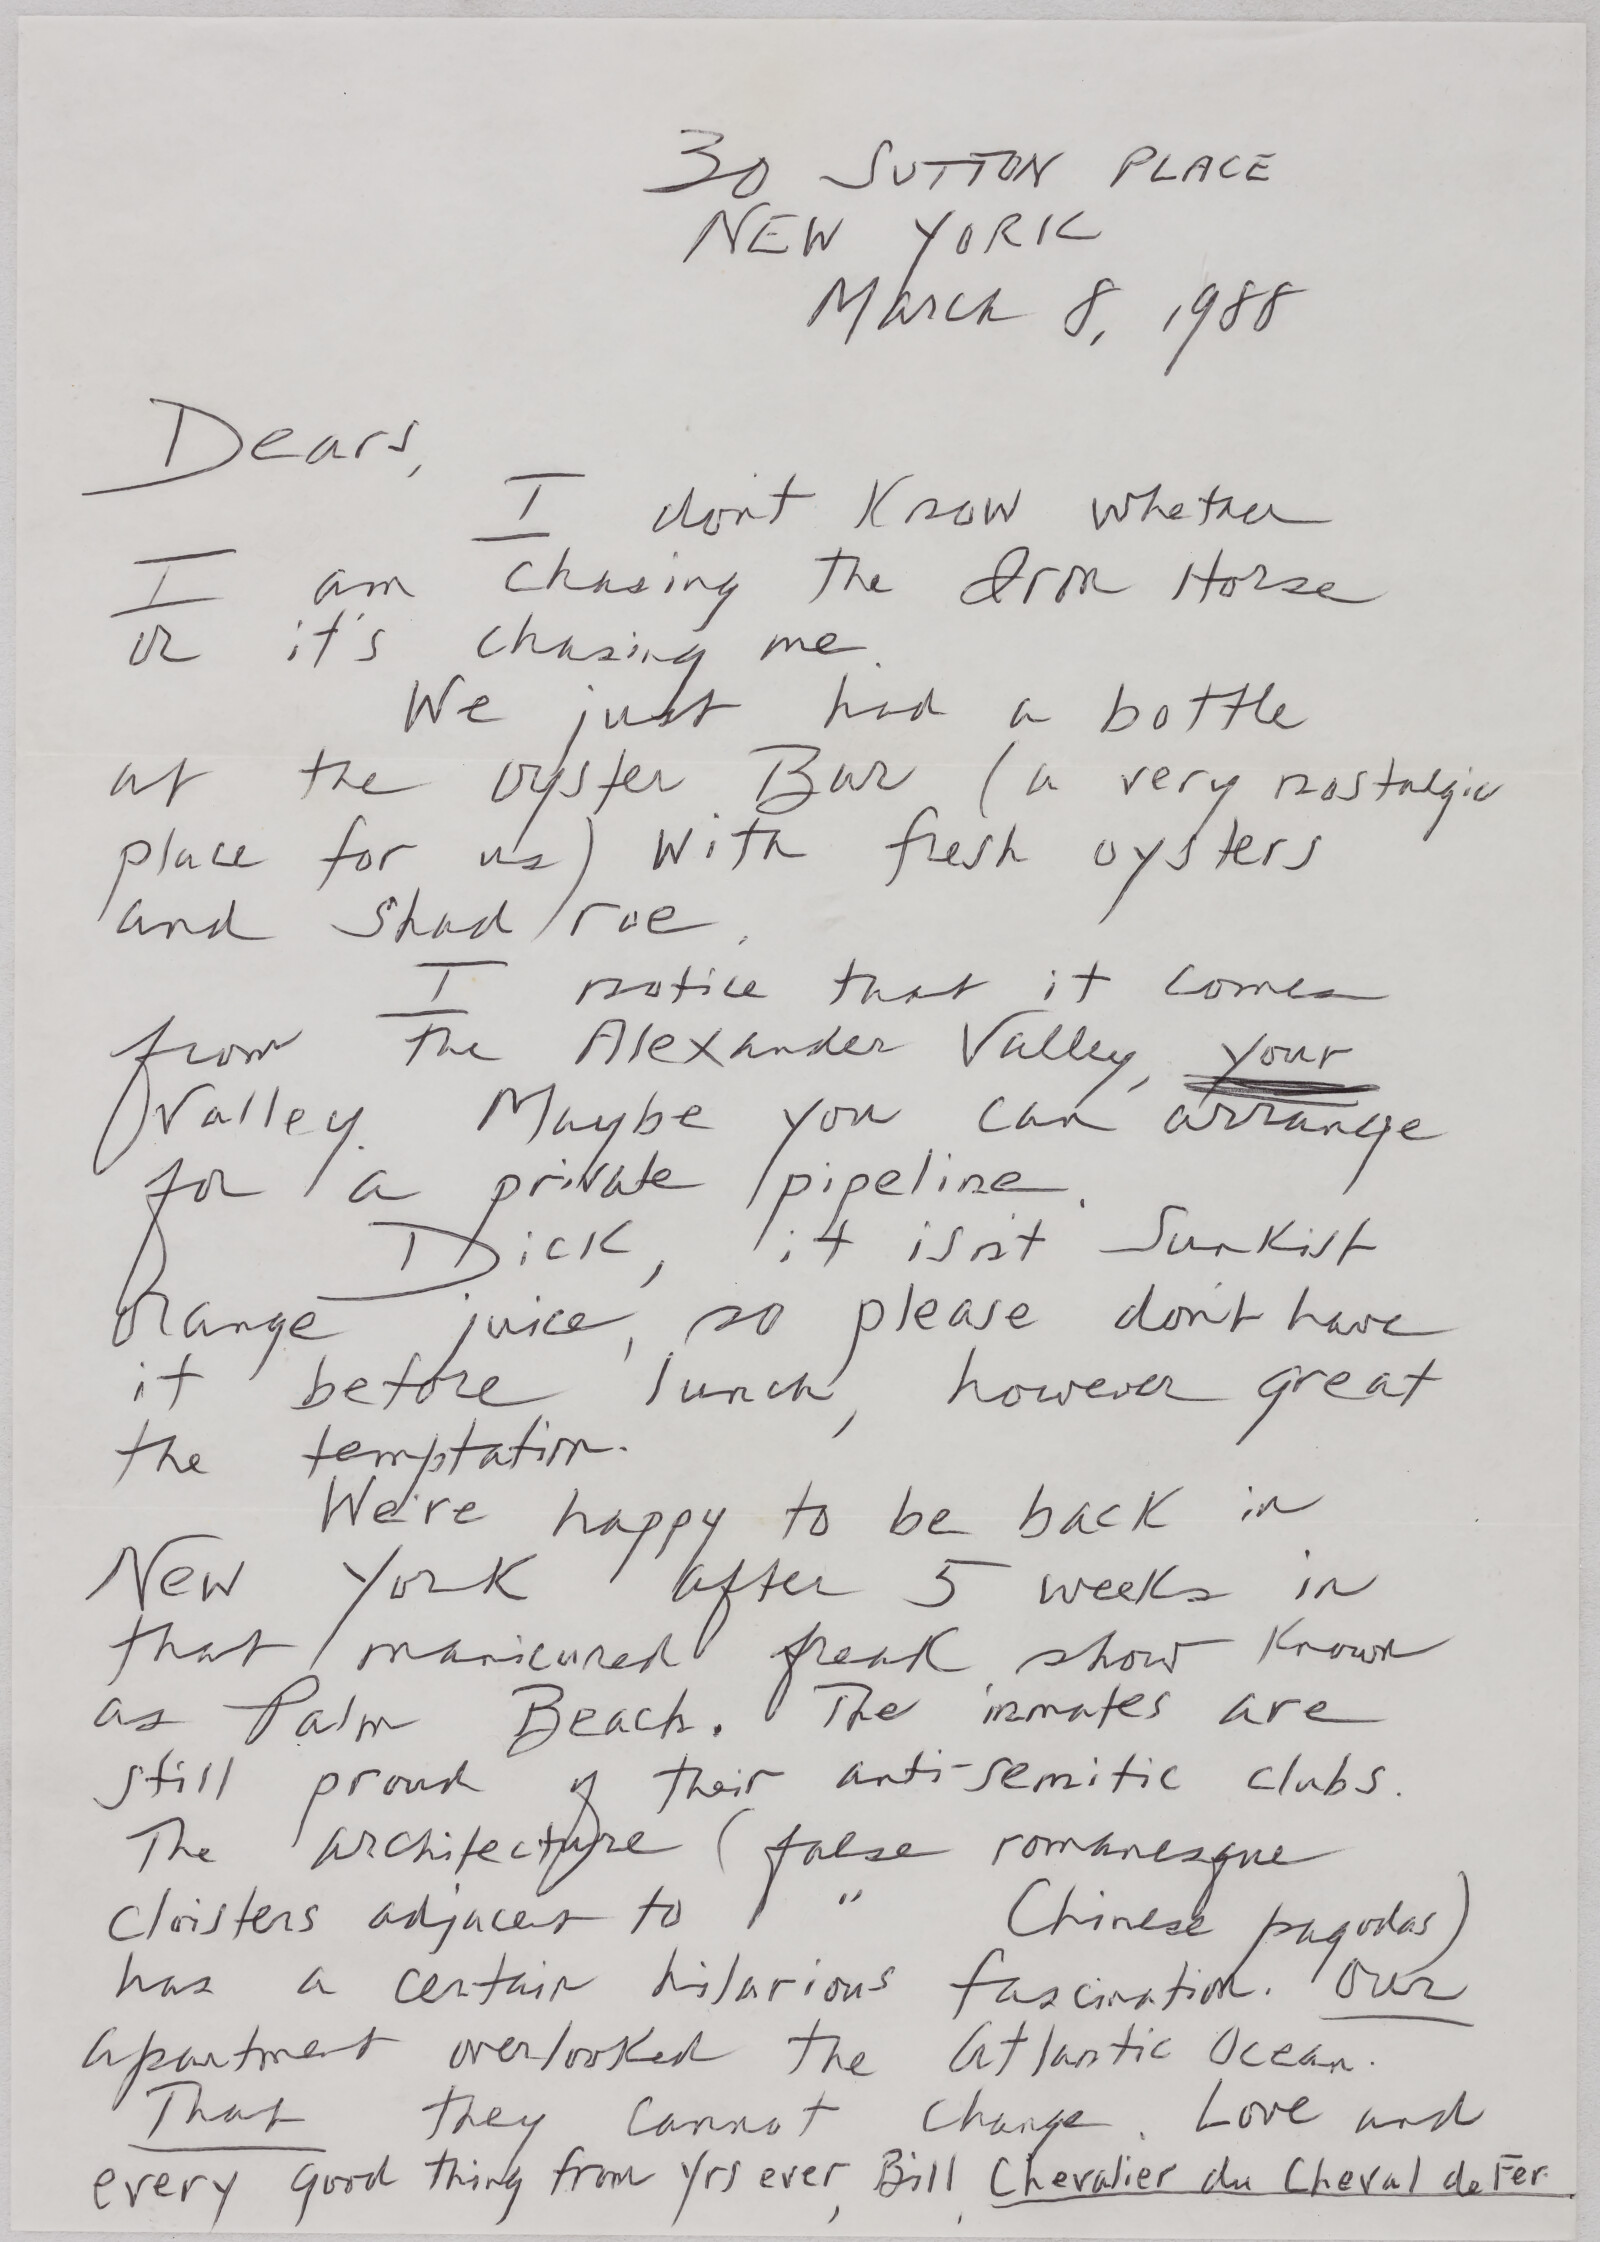 30 SUTTON PLACE
NEW YORK
March 8, 1988
Dears,
I don't know whether
I am chasing the Iron Horse
or it's chasing me.
We just had a bottle
at the Oyster Bar (a very nostalgic
place for us) with fresh oysters
and shad roe.
I notice that it comes
from the Alexander Valley, your
Valley. Maybe you can arrange
for a private pipeline.
Dick, it isn't Sunkist
Orange juice, so please don't have
it before lunch, however great
the temptation.
We're happy to be back in
New York after 5 weeks in
that manicured freak show known
as Palm Beach. The inmates are
still proud of their anti-semitic clubs.
The architecture (false romanesque
cloisters adjacent to " Chinese pagodas)
has a certain hilarious fascination. Our
apartment overlooked the Atlantic Ocean.
That they cannot change. Love and
every good thing from yrs ever, Bill, Chevalier du Cheval de Fer.